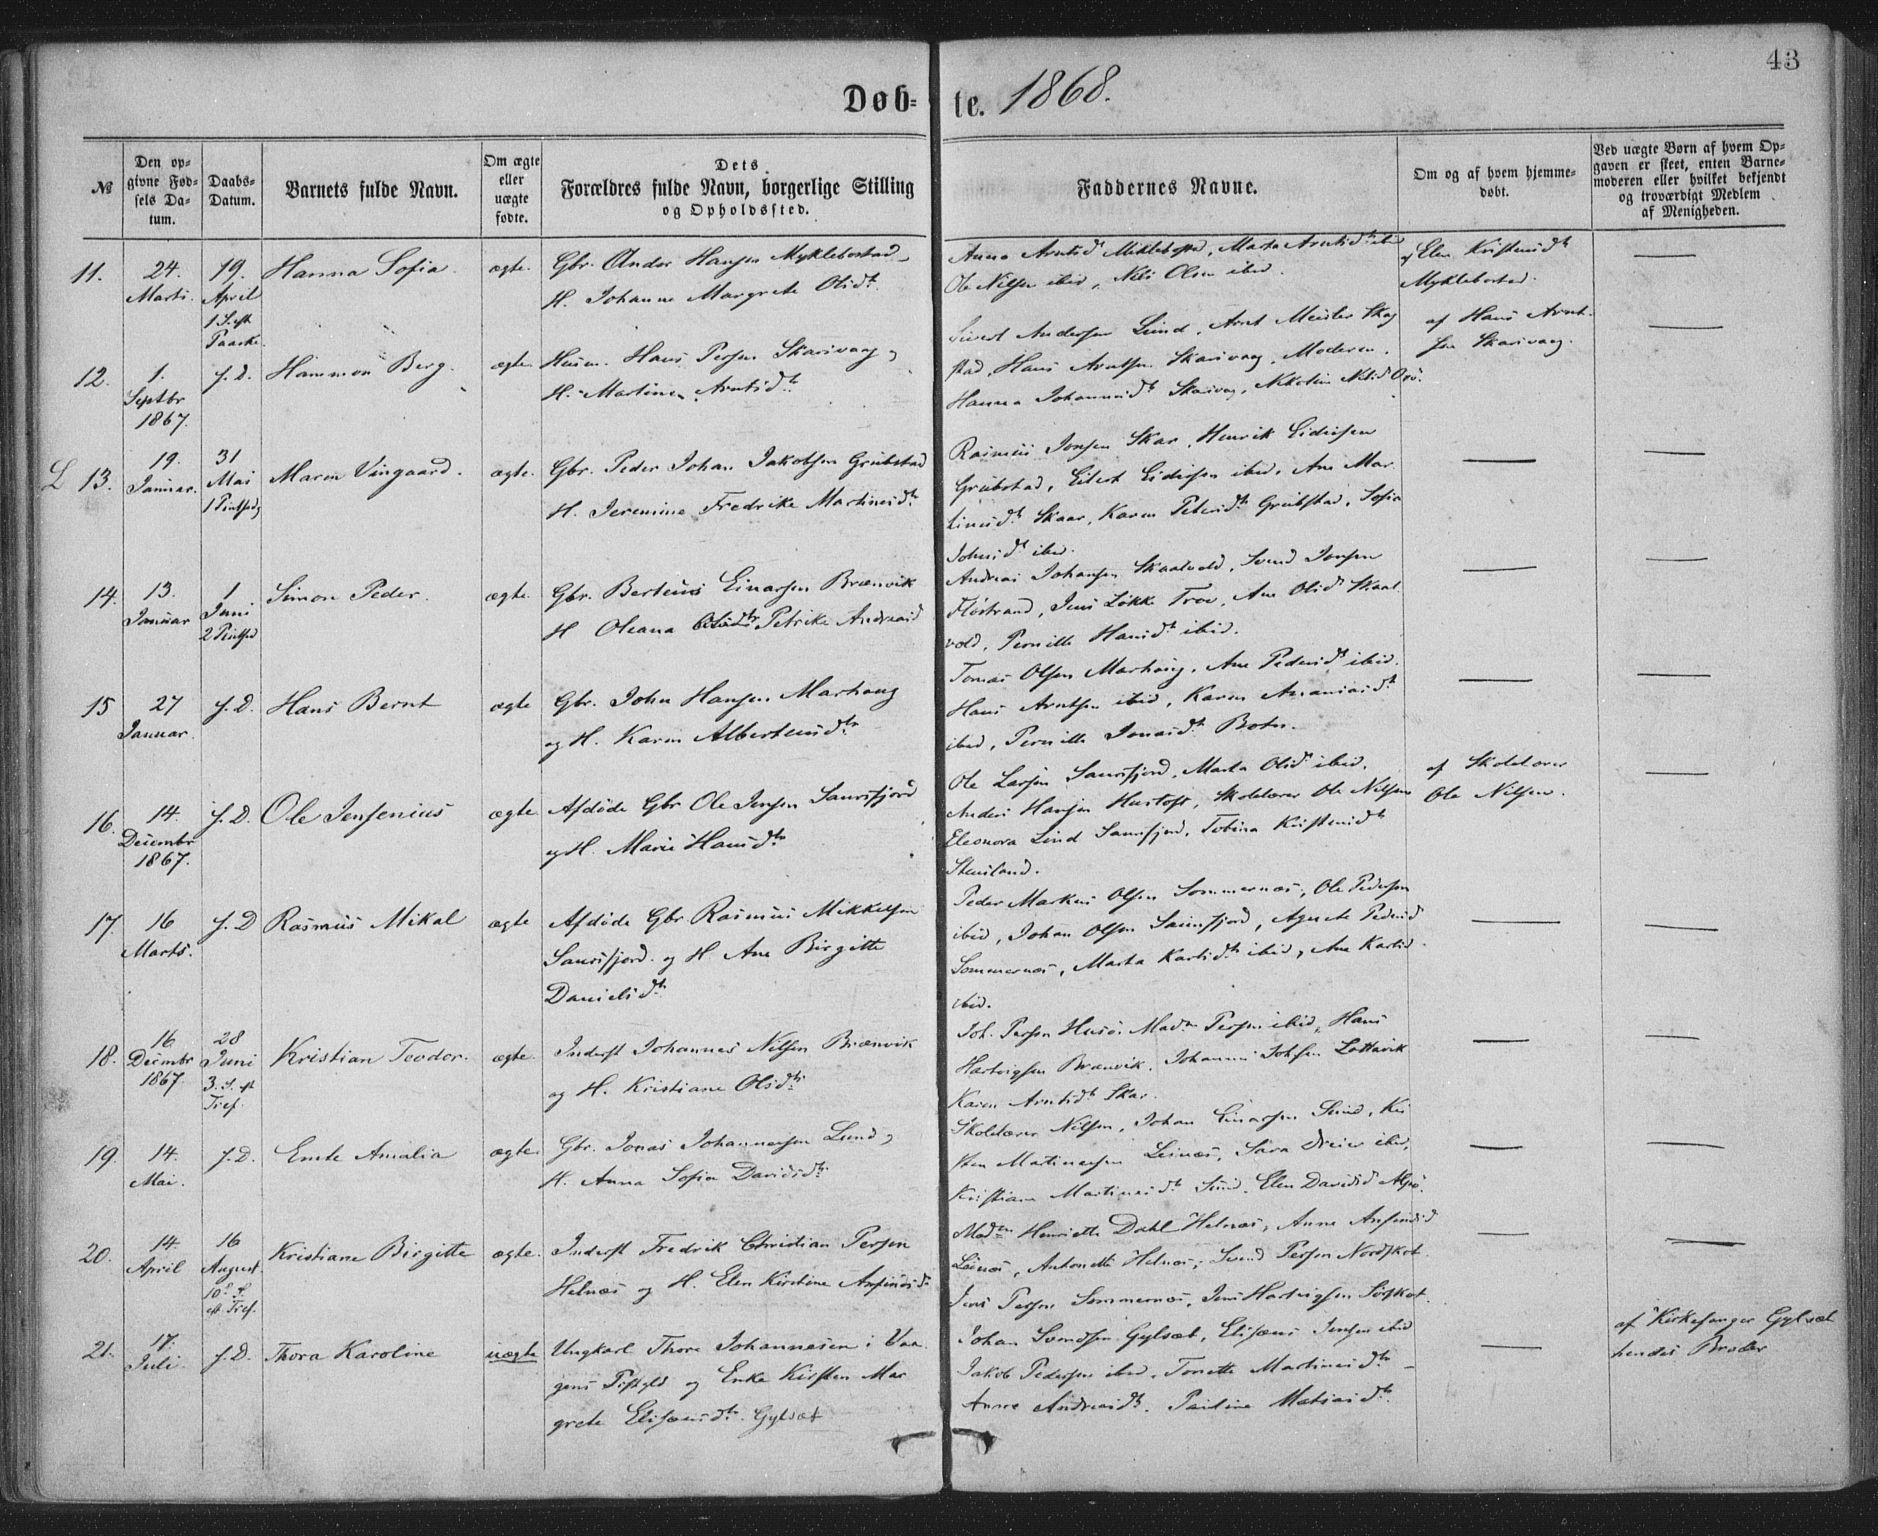 43
Døb= te. 1868.
№
Den opgivne Fødsels Datum.
Daabs-Datum.
Barnets fulde Navn.
Om ægte eller uægte fødte.
Dets Forældres fulde Navn, borgerlige Stilling og Opholdssted.
Faddernes Navne.
Om og af hvem hjemmedøbt.
Ved uægte Børn af hvem Opgaven er skeet, enten Barnemoderen eller hvilket bekjendt og troværdigt Medlem af Menigheden.
11. 24. Marts. 19. April 1 S. eft Paaske. Hanna Sofia. ægte.
Gbr. Andor Hansen Myklebostad
H. Johanne Margrete Olsdt.
Ole Nilsen ibid, Nils Olsen ibid.
af Elen Kristensdt
Myklebostad.
12. 1. Septbr 1867. s. D. Hammon Berg. ægte.
Husm. Hans Persen Skarsvaag
H. Martine Arntsdt.
Sivert Andersen Lund, Arnt Meister Skag
stad, Hans Arntsen Skarsvaag, Moderen.
Hanna Johannesdt Skarsvag,
af Hans Arnt-
sen Skarsvaag.
L 13. 19. Januar. 31 Mai 1 Pintsedg Maren Vingaard. ægte.
Gbr. Peder Johan Jakobsen Grubstad
H. Jeremine Fredrike Martinusdt.
Rasmus Jonsen Skar, Henrik Eidissen
Grubstad, Eilert Eidissen ibid, Ane Mar
tinusdt Skaar, Karen Petersdt Grubstad, Sofia
Johnsdt ibid.
14. 13. Januar 1 Juni 2 Pintsed Simon Peder. ægte.
Gbr. Berteus Einarsen Brænvik
H Oleana Petrike Andreasd
Andreas Johansen Skaalvold, Svend Jonsen
Flostrand, Jens Løkke Trov, Ane Olsd Skaal
vold, Pernille Hansdt ibid.
15 27 Januar. s. D. Hans Bernt ægte
Gbr. John Hansen Marhaug
og H. Karen Albertsusdtr
Tomas Olsen Marhaug, Ane Pedersdt ibid.
Hans Arntsen ibid, Karen Ananiasdt
ibid, Pernille Jonasdt Botn.
16. 14. Decembr 1867. s. D. Ole Jensenius ægte.
Afdøde Gbr Ole Jensen Saursfjord
og H. Marie Hansdtr
Ole Larsen Saursfjord, Marta Olsdt ibid.
Anders Hansen Hustoft, Skolelærer Ole Nilsen
Eleonora Lind Saursfjord, Tobina Kristensdt
Stensland.
af Skolelærer
Ole Nilsen.
17. 16 Marts. s. D Rasmus Mikal ægte
Afdøde Gbr Rasmus Mikkelsen
Saursfjord og H Ane Birgitte
Danielsdt.
Peder Markus Olsen Sommernæs, Ole Pedersen
ibid, Johan Olsen Saursfjord, Agnete Pedersd
Sommernæs, Marta Karlsdt ibid, Ane Karlsd.
ibid.
18. 16 Decembr 1867. 28 Juni 3. S. eft Tref. Kristian Teodor. ægte.
Inderst Johannes Nilsen Brænvik
og H. Kristiane Olsdt.
Joh. Persen Husø. Madm Persen ibid, Hans
Hartvigsen Brænvik. Johannes Johsen Lottavik
Karen Arntsdt Skar.
19. 14. Mai. s. D. Emte Amalia ægte.
Gbr. Jonas Johannessen Lund,
H. Anna Sofia Davidsdt.
Skolelærer Nilsen, Johan Einarsen Lund, Kri
sten Martinussen Leinæs, Sara Dreier ibid,
Kristiane Martinusdt Lund. Elen Davidsd Alpø.
20. 14. April 16 August 10de S. eft. Tref. Kristiane Birgitte ægte.
Inderst Fredrik Christian Persen
Helnæs og H. Elen Kirstine Anfinsdt.
Madm Henriette Dahl Helnæs, Anne Anfinsdt
Leinæs, Antonette Helnæs, Svend Persen Nordskot.
Jens Persen Sommernæs, Jens Hartvigsen Sørskot.
21. 17. Juli. s. D. Thora Karoline uægte
Ungkarl Thore Johannesen i Vaa
gens Pstgld og Enke Kirsten Mar
grete Eliseusdtr Gylset
Johan Svendsen Gylset, Eliseus Jensen ibid
Jakob Pedersen ibid, Tonette Martinusdtr
Anne Andreasdt. Pauline Matiasdt.
af Kirkesanger Gylset
hendes Broder